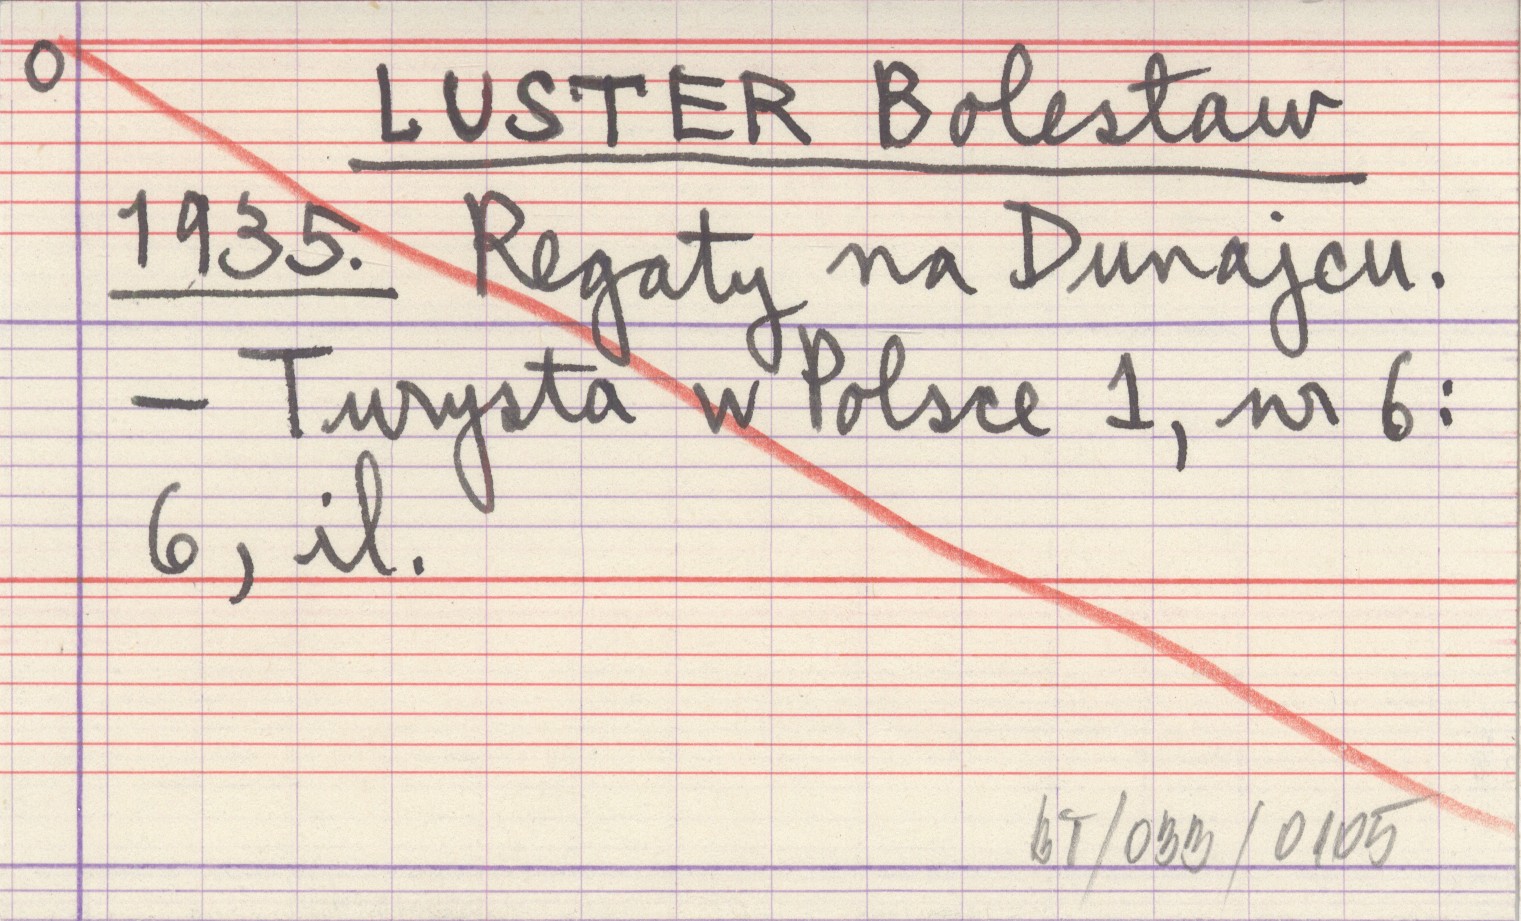 O
LUSTER Bolesław
1935. Regaty na Dunajcu.
— Turysta w Polsce 1, nr 6:
6, il.
BT/033/0105